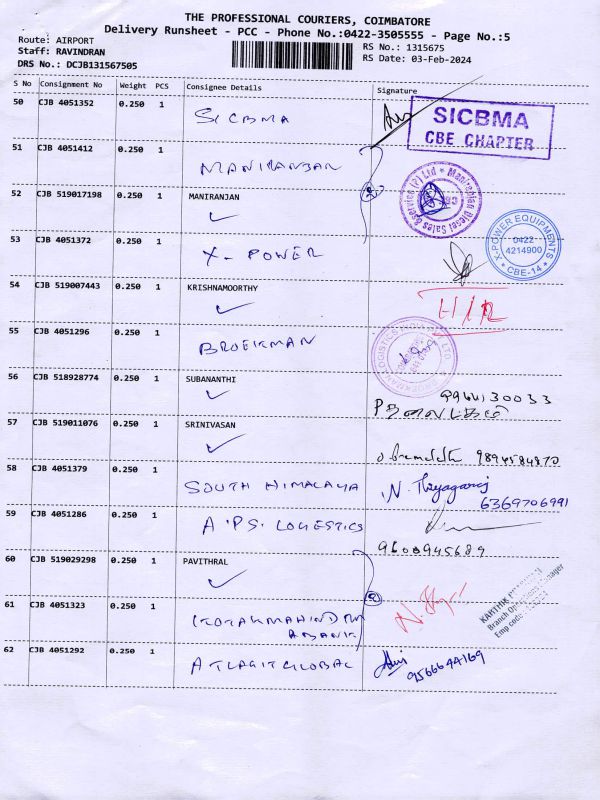 THE PROFESSIONAL COURIERS, COIMBATORE
Delivery Runsheet - PCC - Phone No.:0422-3505555 - Page No.:5
Route: AIRPORT
RS No.: 1315675
Staff: RAVINDRAN
RS Date: 03-Feb-2024
DRS No.: DCJB131567505
S No Consignment No Weight PCS Consignee Details Signature
50 CJB 4051352 0.250 1 SICBMA
SICBMA
CBE CHAPTER
51 CJB 4051412 0.250 1 MANIRANJAN
52 CJB 519017198 0.250 1 MANIRANJAN
53 CJB 4051372 0.250 1 X- POWER
X-POWER EQUIPMENTS
0422
4214900
CBE-14
54 CJB 519007443 0.250 1 KRISHNAMOORTHY
H/R
55 CJB 4051296 0.250 1 BROEKMAN
56 CJB 518928774 0.250 1 SUBANANTHI
57 CJB 519011076 0.250 1 SRINIVASAN
9894584870
58 CJB 4051379 0.250 1 SOUTH HIMALAYA N. Thyagaraj
6369706991
59 CJB 4051286 0.250 1 A.P.S. LOGESTICS
9600945689
60 CJB 519029298 0.250 1 PAVITHRAL
61 CJB 4051323 0.250 1 KOTAKMAHINDRA
BANK
62 CJB 4051292 0.250 1 ATLAGITGLOBAL
9566644169